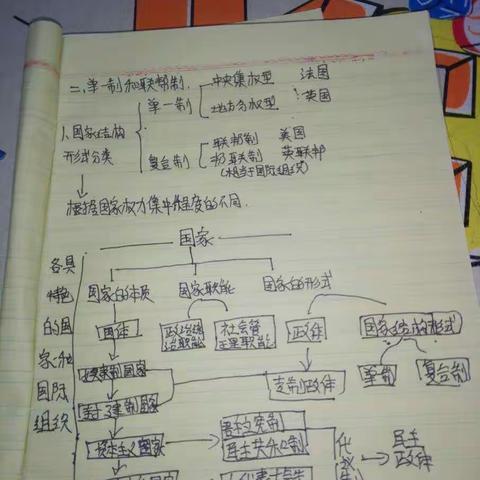 二、单一制和联邦制.
中央集权型 法国
单一制
地方分权型 英国
1、国家结构
形式分类
联邦制 美国
复合制 邦联制 英联邦
(相当于国际组织)
根据国家权力集中程度的不同.
国家
各具
特色
的国
家和
国际
组织
国家的本质 国家职能 国家的形式
国体 政治统治职能 社会管理职能 政体 国家结构形式
奴隶制国家 专制政体 单一制 复合制
封建制国家
资本主义国家 君主立宪制
民主共和制
民主
政体